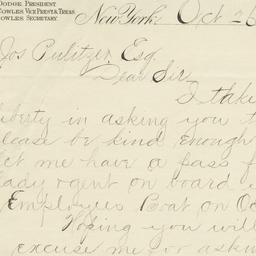 DODGE PRESIDENT
COWLES VICE PREST & TREAS.
COWLES SECRETARY
New York, Oct 26
Jos Pulitzer, Esq
Dear Sir
I take
liberty in asking you t
please be kind enough
let me have a pass f
lady agent on board
Employees Boat on Oc
Hoping you will
excuse me for askin